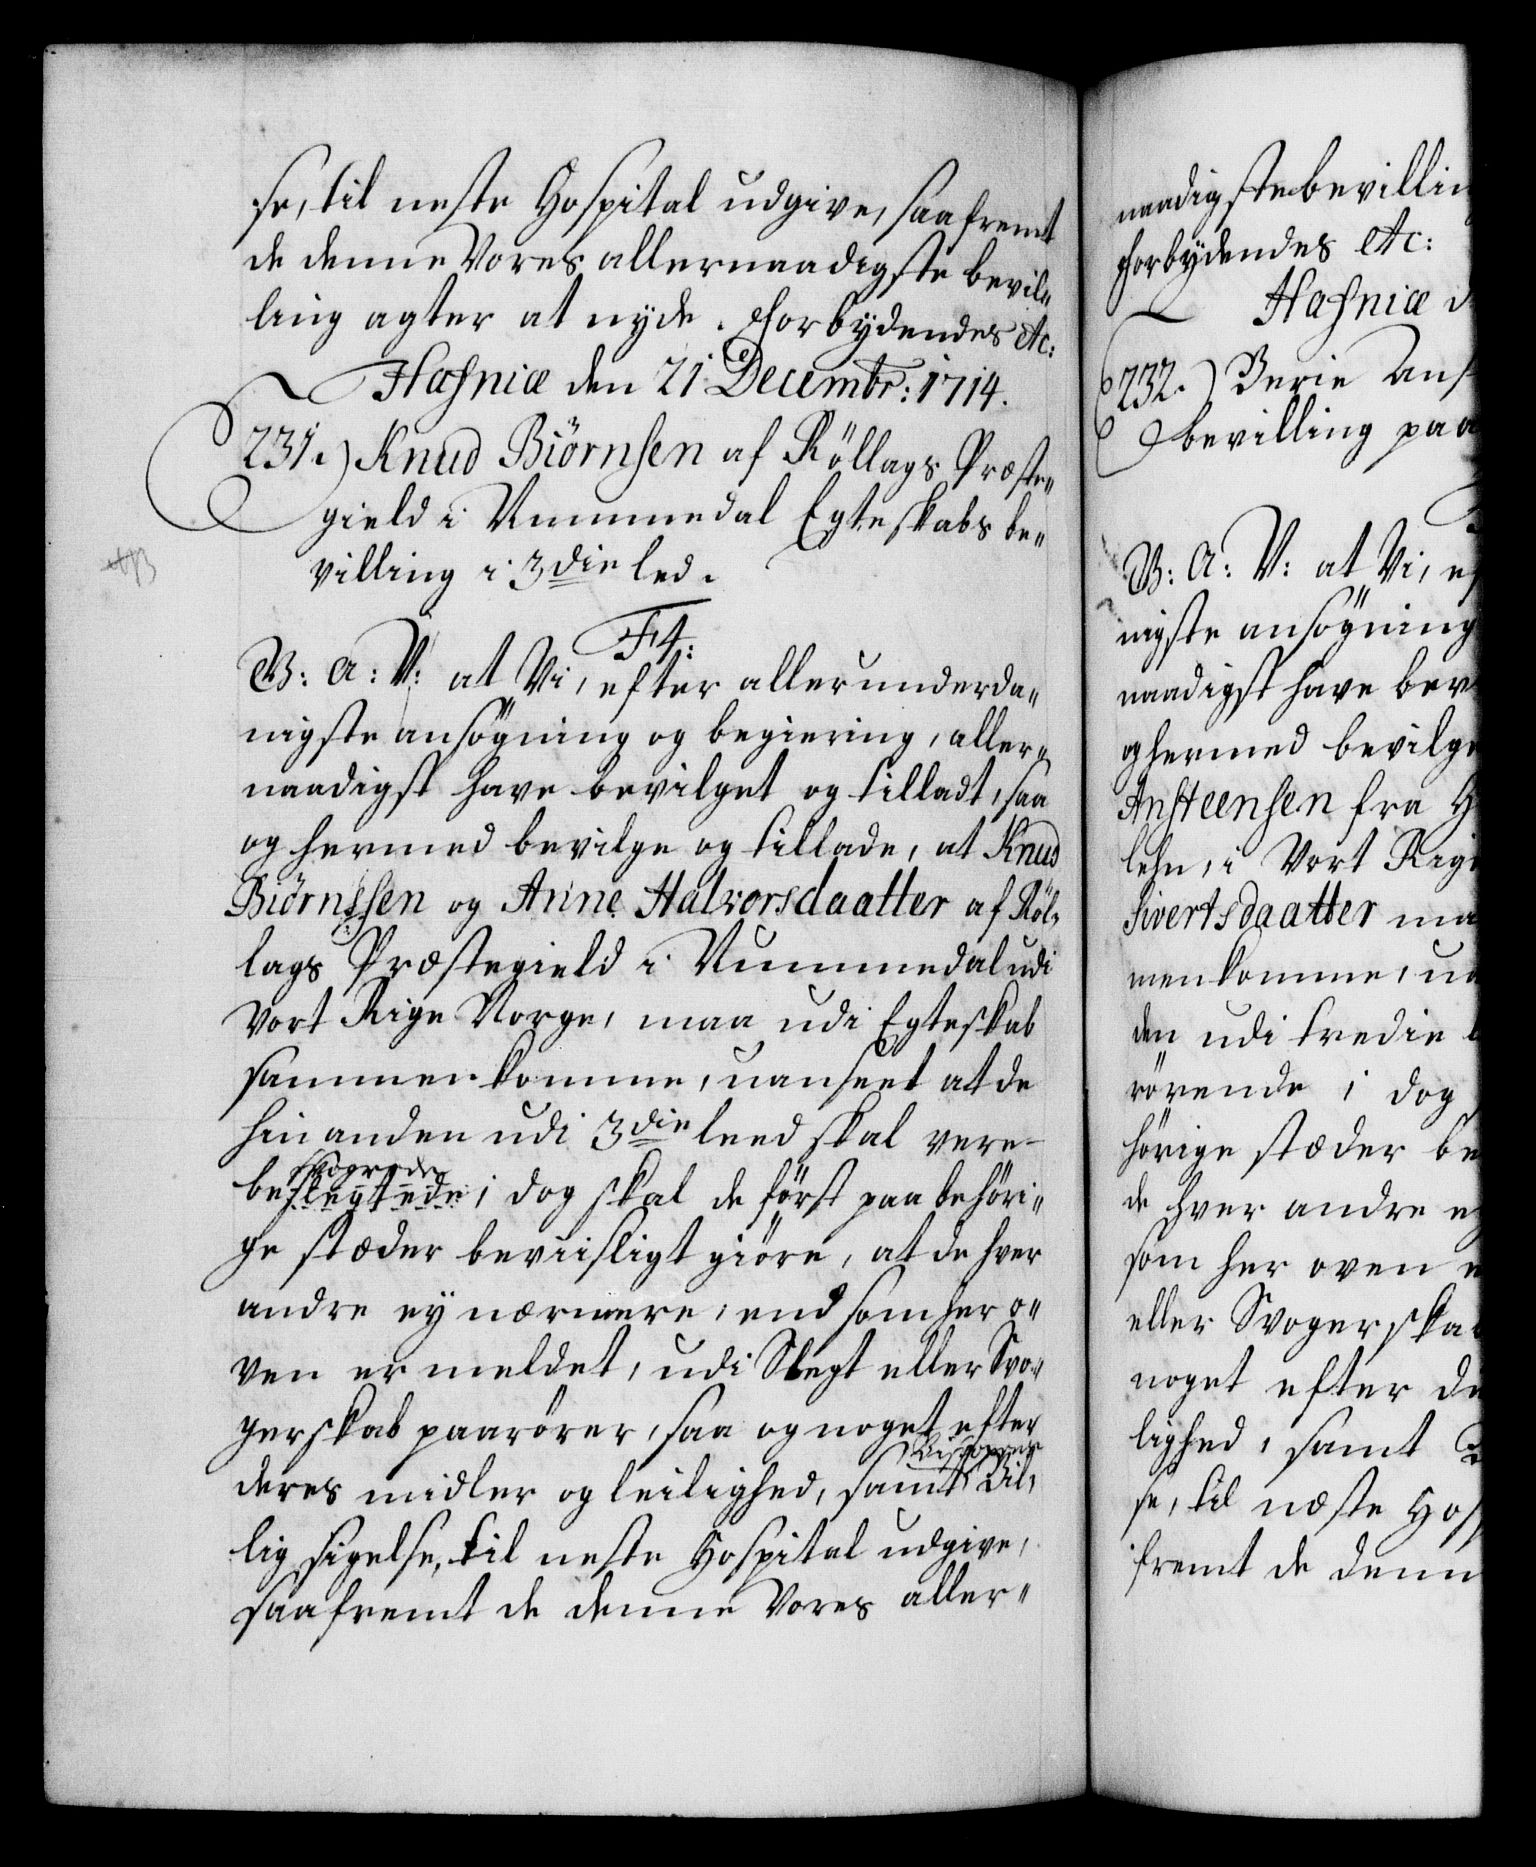 se, til neste Hospital udgive, saafremt
de denne Vores allernaadigste bevil„
ling agter at nyde. Forbydendes etc:
Hafniæ den 21 Decembr: 1714.
231.) Knud Biörnsen af Röllags Præste„
gield i Nummedal Egteskabs be„
villing i 3die led.
F4:
G: A: V: at Vi, efter allerunderda„
nigste ansögning og begiering, aller„
naadigst have bevilget og tilladt, saa
og hermed bevilge og tillade, at Knud
Biörnssen og Anne Halvorsdaatter af Röl„
lags Præstegield i Nummedal udi
Vort Rige Norge, maa udi Egteskab
sammenkomme, uanseet at de
hinanden udi 3die leed skal vere
besvogrede
beslegtede; dog skal de först paa behöri„
ge stæder beviisligt giöre, at de hver
andre ey nærmere, end som her o„
ven er meldet, udi Slegt eller Svo„
gerskab paarörer, saa og noget efter
deres midler og leilighed, samt Bil„
lig sigelse, til neste Hospital udgive,
saafremt de denne Vores aller„
naadigste bevillin
Forbydendes etc:
Hafniæ d
232.) Berie Anst
bevilling paa
G: A: V: at Vi, ef
nigste ansögning
naadigst have bev
og hermed bevilge
Ansteensen fra H
lehn, i Vort Rige
Sivertsdaatter ma
menkomme, ua
den udi tredie l
rörende; dog
hörige stæder be
de hver andre e
som her oven e
eller Svogerska
noget efter de
lighed, samt
se, til næste Hos
fremt de denn